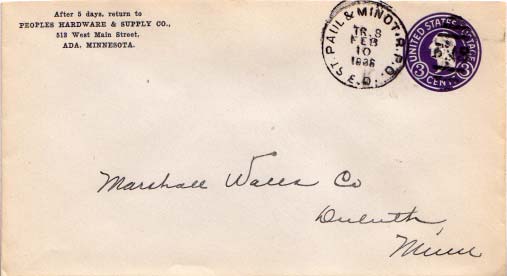 After 5 days, return to
PEOPLES HARDWARE & SUPPLY CO.,
513 West Main Street,
ADA, MINNESOTA.
ST. PAUL & MINOT. R.P.O.
TR. 3
FEB
10
1936
E.D.
UNITED STATES POSTAGE
3 CENTS 3
Marshall Wells Co
Duluth
Minn